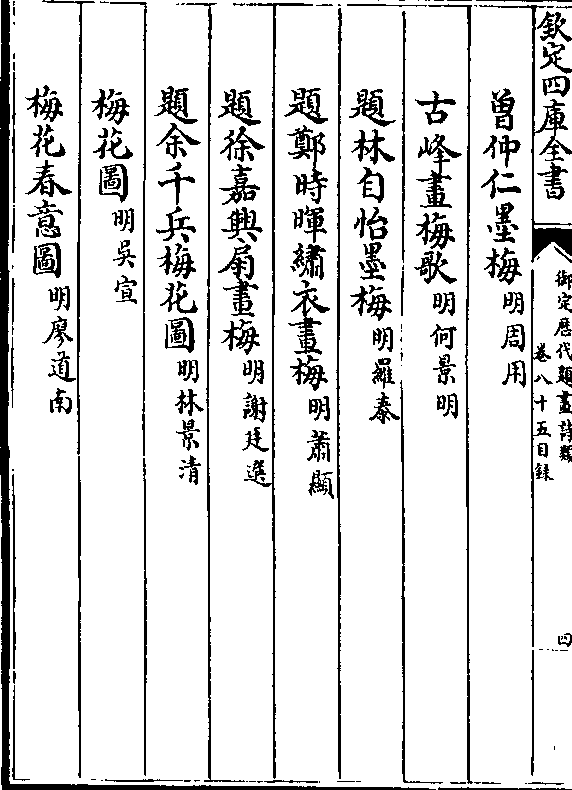 欽定四庫全書
御定歴代題畫詩類
卷八十五目録
四
曽仲仁墨梅 明周用
古峰畫梅歌 明何景明
題林自怡墨梅 明羅泰
題鄭時暉繡衣畫梅 明蕭顯
題徐嘉興扇畫梅 明謝廷選
題余千兵梅花圖 明林景清
梅花圖 明吳宣
梅花春意圖 明廖道南